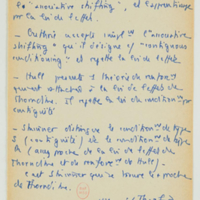 de "associative shifting", et l'apprentissage
par la loi de l'effet.
- Guthrie accepte l'"associative
shifting" qu'il désigne "contiguous
conditioning" et rejette la loi de l'effet.
- Hull présente 1 théorie du renforcement
qui est rattachée à la loi de l'effet de
Thorndike. Il rejette la loi du conditionnement par
contiguité
- Skinner distingue le conditionnement de type
S (contiguité) de le conditionnement de type
R (proche de la loi de l'effet de
Thorndike et du renforcement de Hull).
c'est Skinner qui se trouve le + proche
de Thorndike.